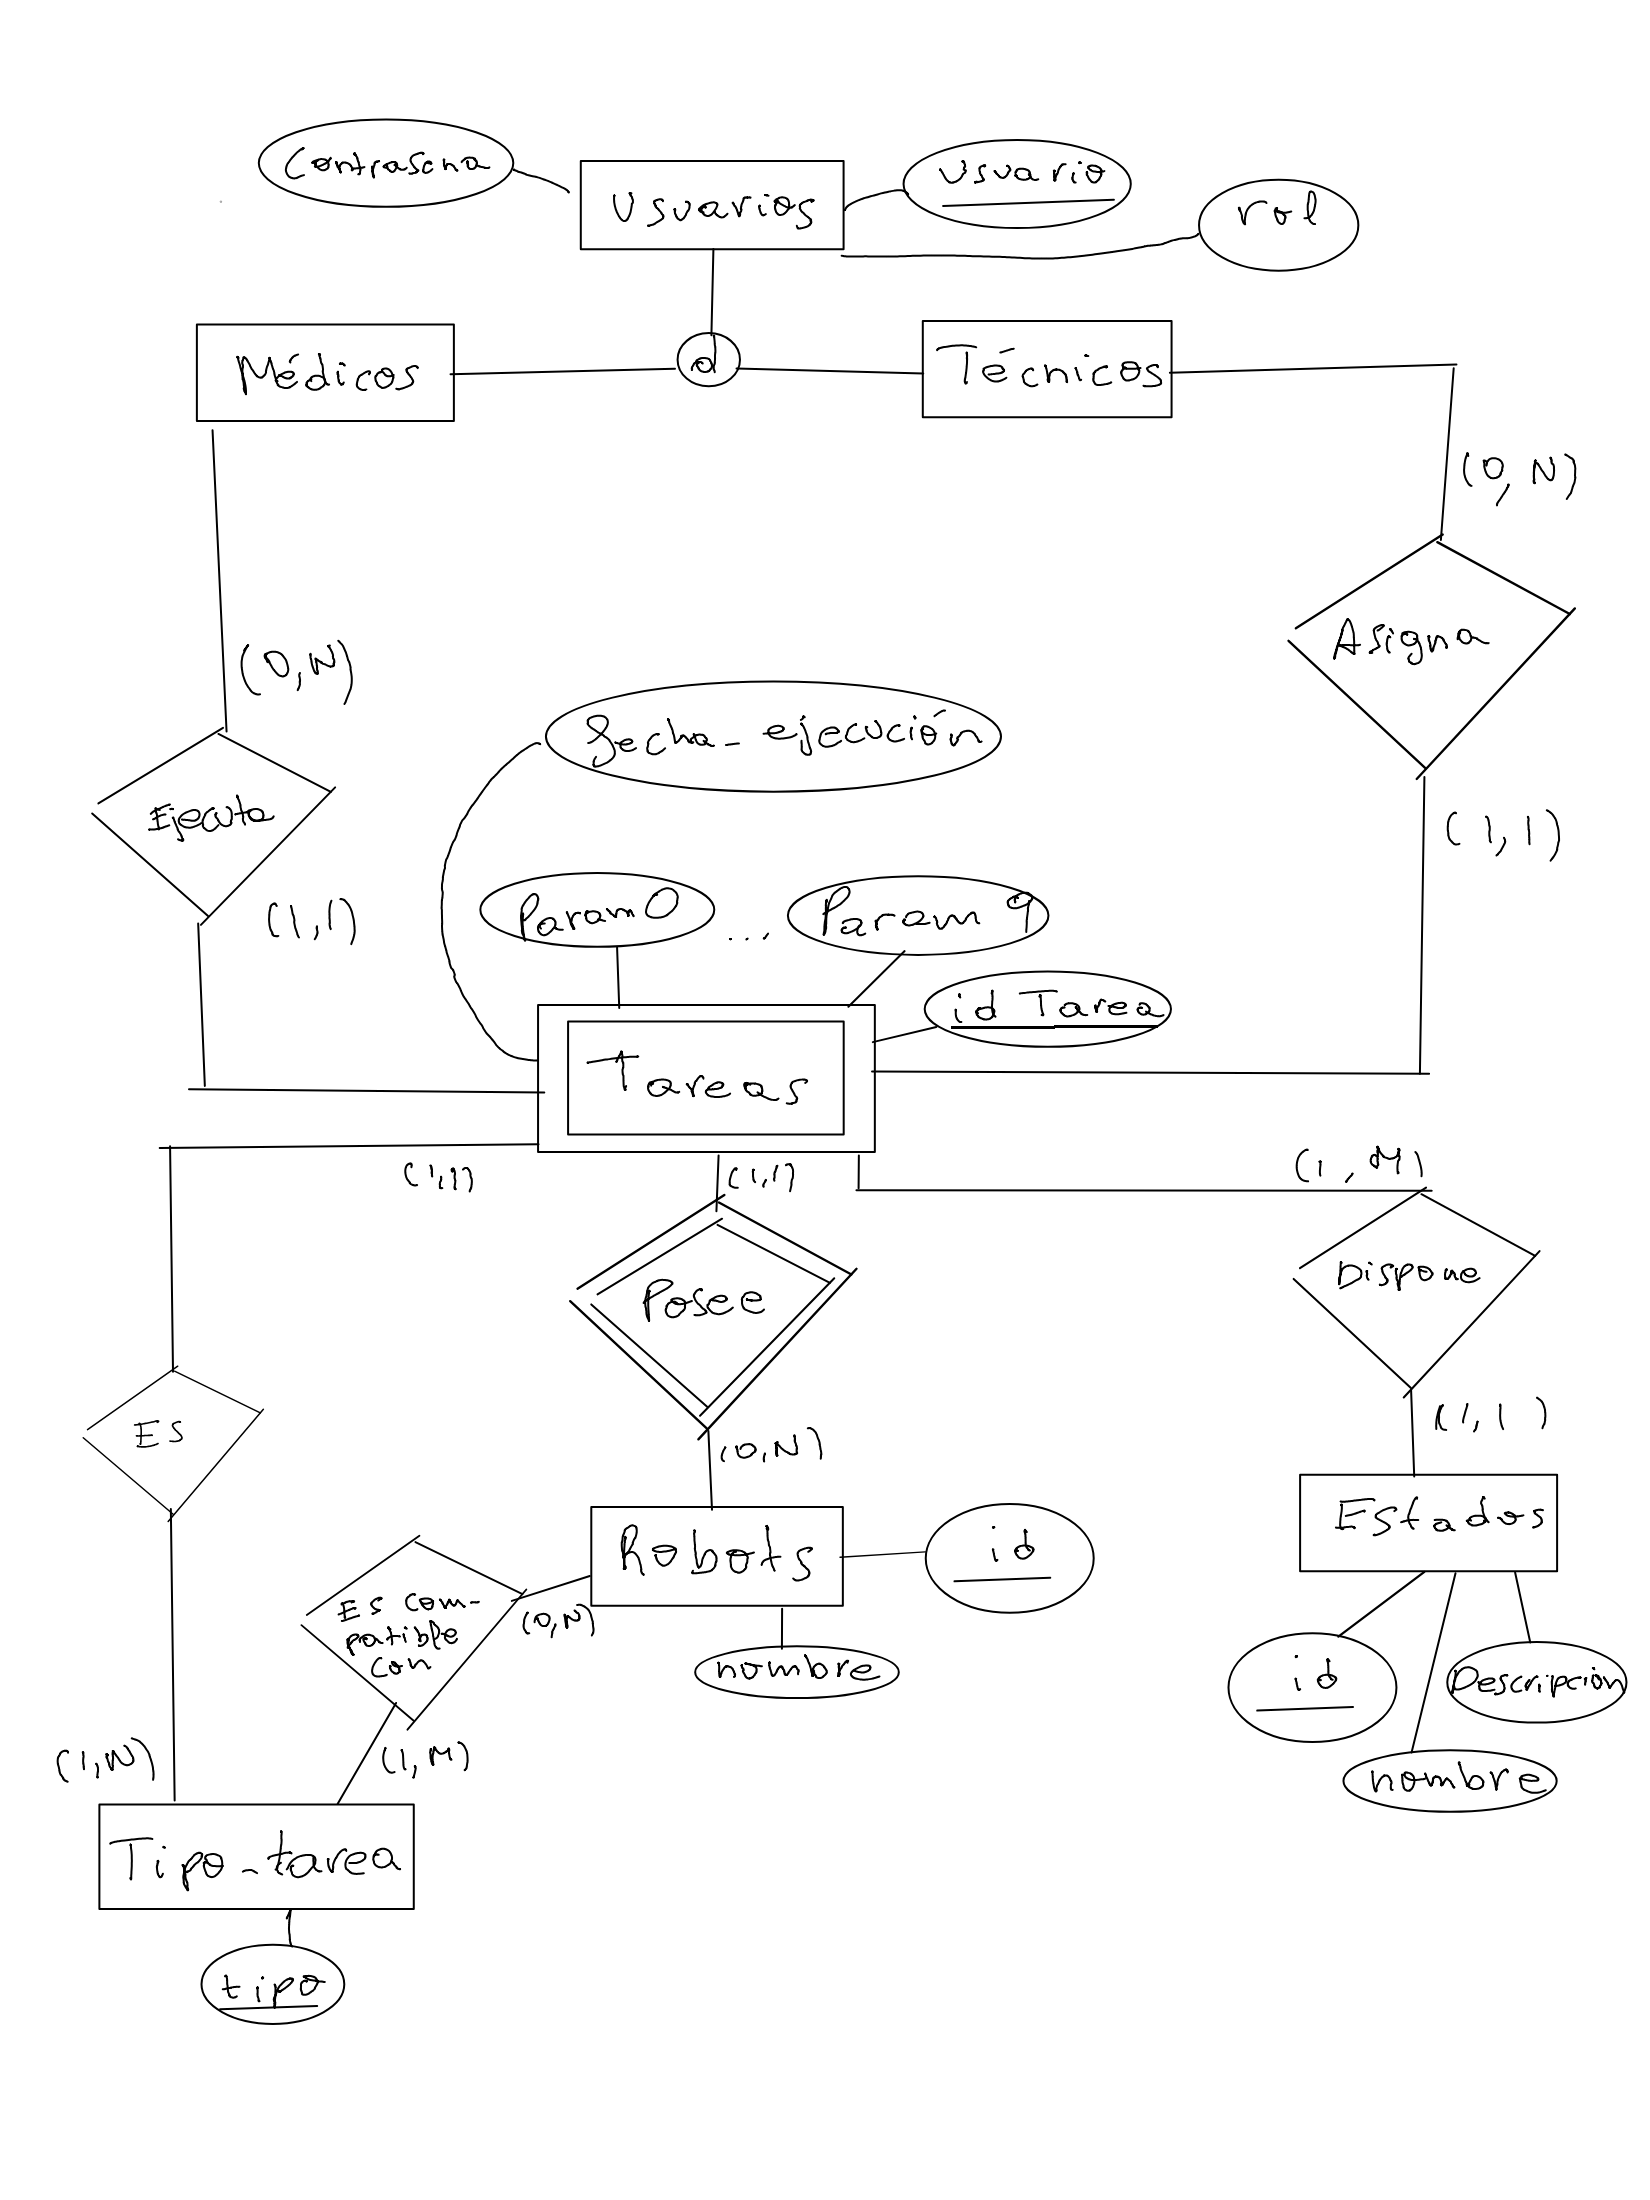 Contrasena
Usuarios
Usuario
rol
Médicos
d
Técnicos
(0, N)
Asigna
(0, N)
fecha_ejecución
Ejecuta
(1, 1)
(1, 1)
Param0
...
Param 9
id Tarea
Tareas
(1, 1)
(1, 1)
(1, M)
Posee
Dispone
Es
(1, 1)
(0, N)
Robots
id
Estados
Es com-
patible
con
(0, N)
nombre
id
Descripción
(1, N)
(1, M)
nombre
Tipo_tarea
tipo